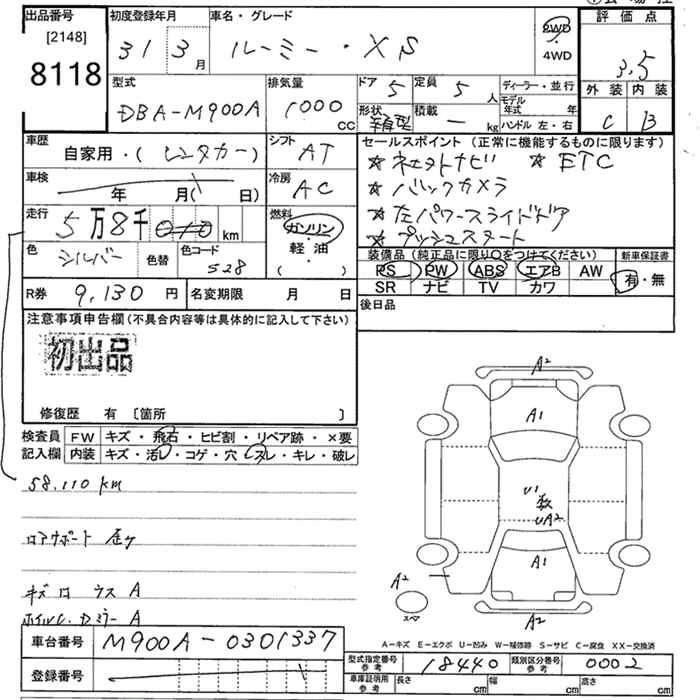 出品番号 初度登録年月 車名・グレード 評価点
[2148] 2WD
8118 31 3月 ルーミー・XS 4WD 3.5
型式 排気量 ドア 5 定員 5人 ディーラー・並行 外装 内装
DBA-M900A 1000cc 形状 積載 ー kg モデル年式 年 C B
ハンドル 左・右
車歴 シフト セールスポイント(正常に機能するものに限ります)
自家用・(レンタカー) AT ☆ ネットナビ ☆ ETC
車検 冷房 ☆ バックカメラ
年 月( 日) AC ☆ 左パワースライドドア
走行 5万8千 km 燃料 ☆ プッシュスタート
ガソリン
色 シルバー 色替 色コード 528 軽・油 ( )
装備品(純正品に限り○をつけてください) 新車保証書
PS PW ABS エアB AW 有・無
SR ナビ TV カワ
R券 9,130円 名変期限 月 日 後日品
注意事項申告欄(不具合内容等は具体的に記入して下さい)
初出品
修復歴 有 〔箇所 〕
検査員 FW キズ・飛石・ヒビ割・リペア跡・×要
記入欄 内装 キズ・汚レ・コゲ・穴・スレ・キレ・破レ
58,110km
ロアサポート 歪ケ
A2
A1
U1
UA2
A1
A2
A2
A-キズ E-エクボ U-凹み W-補修跡 S-サビ C-腐食 XX-交換済
車台番号 M900A-0301337
型式指定番号 参考 18440 類別区分番号 参考 0002
登録番号 車庫証明用 参考 長さ cm 幅 cm 高さ cm